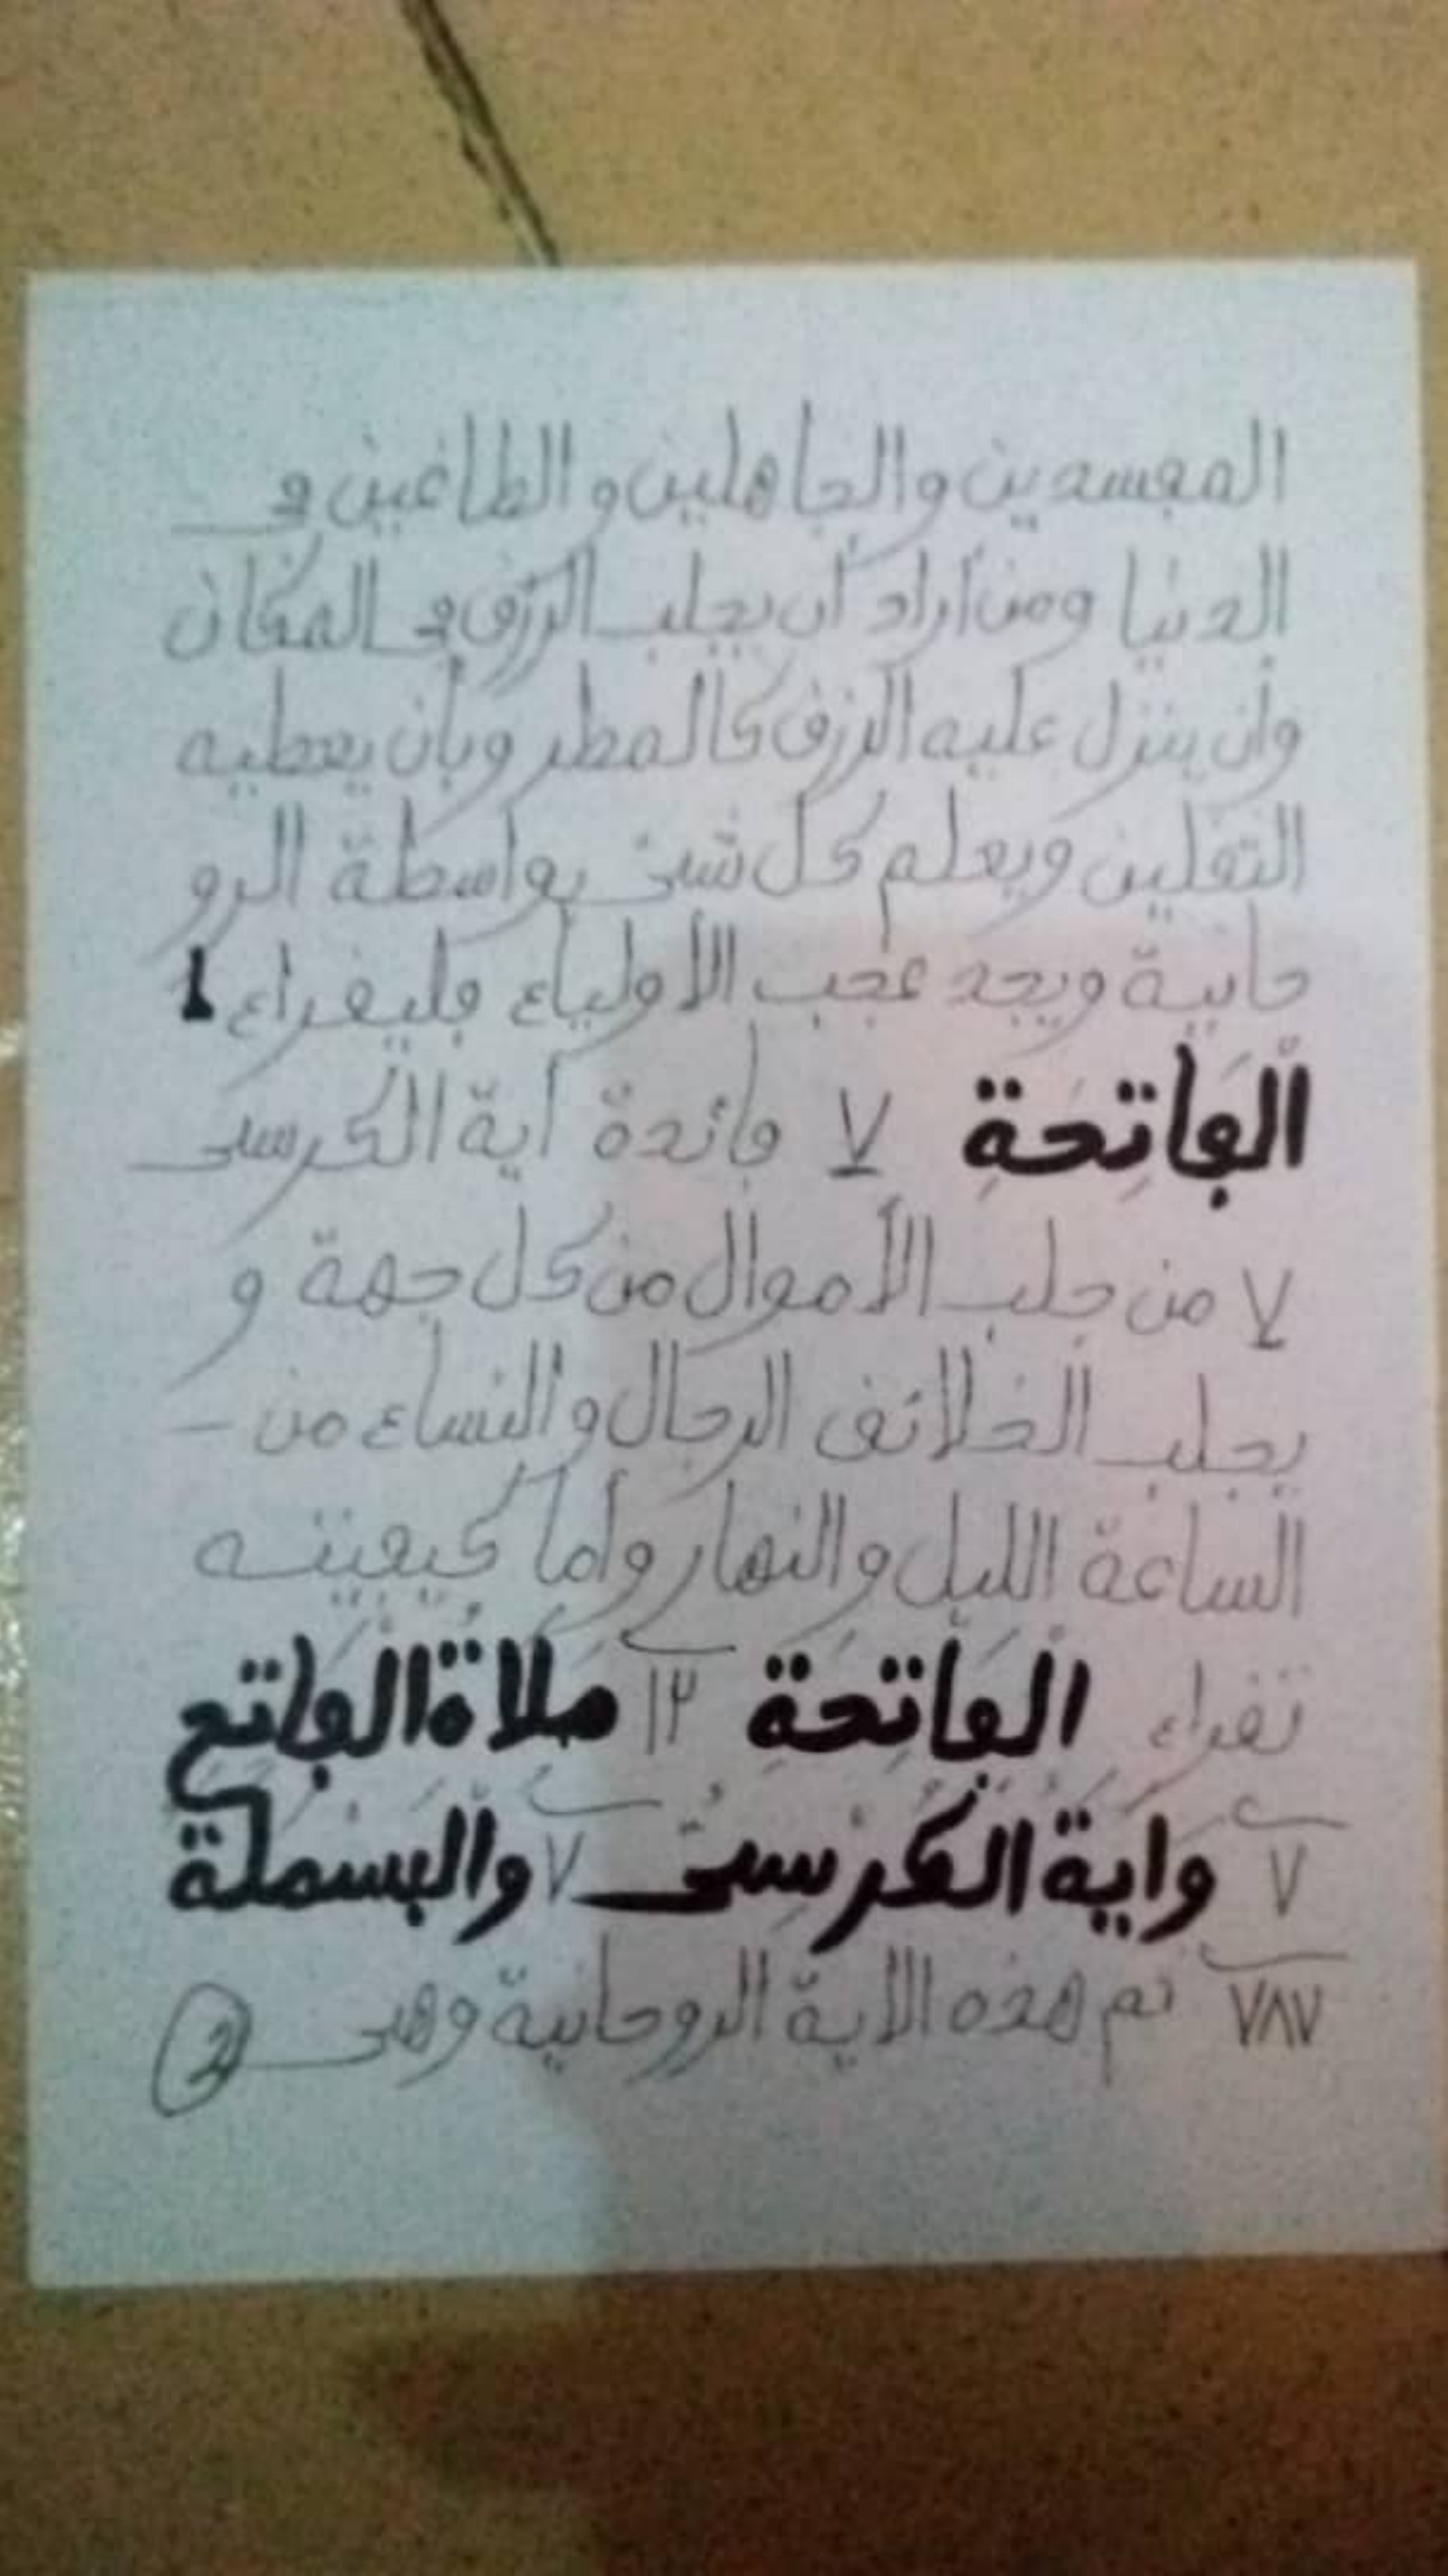 المفسدين والجاهلين و الطاغين في
الدنيا ومن أراد أن يجلب الرزق في المكان
وان ينزل عليه الرزق كالمطر وبأن يعطيه
الثقلين ويعلم كل شئ بواسطة الرو
حانية ويجد عجب الأولياء فليقراء
الْفَاتِحَةِ ٧ فائدة آية الكرسى
٧ من جلب الأموال من كل جهة و
يجلب الخلائق الرجال والنساء من –
الساعة الليل والنهار وأما كيفيته
تقراء الْفَاتِحَةِ ١٢ صلاة الفاتح
٧ وأية الكرسى ٧ والبسملة
٧٨٧ ثم هذه الاية الروحانية وهى 2